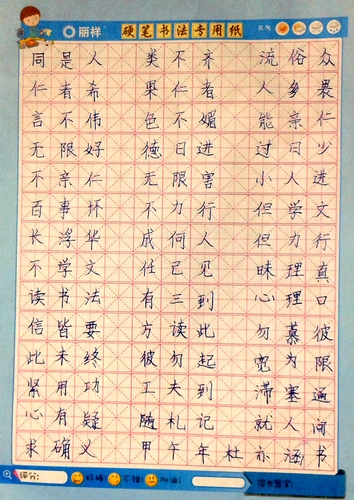 丽祥 硬笔书法专用纸
同是人 类不齐 流俗众
仁者希 果仁者 人多畏
言不伟 色不媚 能亲仁
无限好 德日进 过日少
不亲仁 无限害 小人进
百事坏 不力行 但学文
长浮华 成何人 但力行
不学文 任己见 昧理真
读书法 有三到 心理口
信皆要 方读此 勿慕彼
此未终 彼勿起 宽为限
紧用功 工夫到 滞塞通
心有疑 随札记 就人问
求确义 甲午年 杜亦涵书
评分: 好棒 不错! 加油!